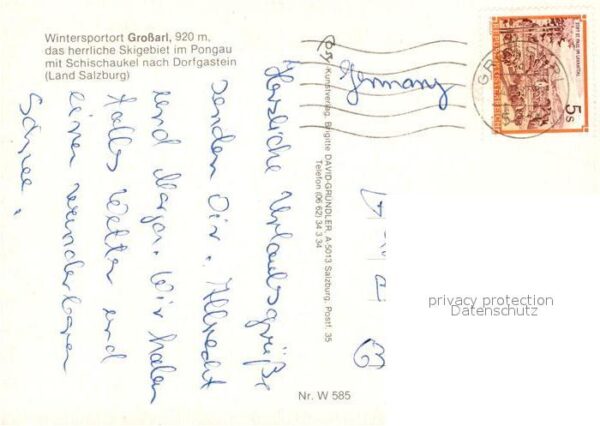 Wintersportort Großarl, 920 m,
das herrliche Skigebiet im Pongau
mit Schischaukel nach Dorfgastein
(Land Salzburg)
Herzliche Urlaubsgrüße
senden Dir, Albrecht
und Marga. Wir haben
tolles Wetter und
einen wunderbaren
Schnee.
Kunstverlag Brigitte DAVID-GRÜNDLER, A-5013 Salzburg, Postf. 35
Telefon (06 62) 34 3 34
Germany
5 S
privacy protection
Datenschutz
Nr. W 585